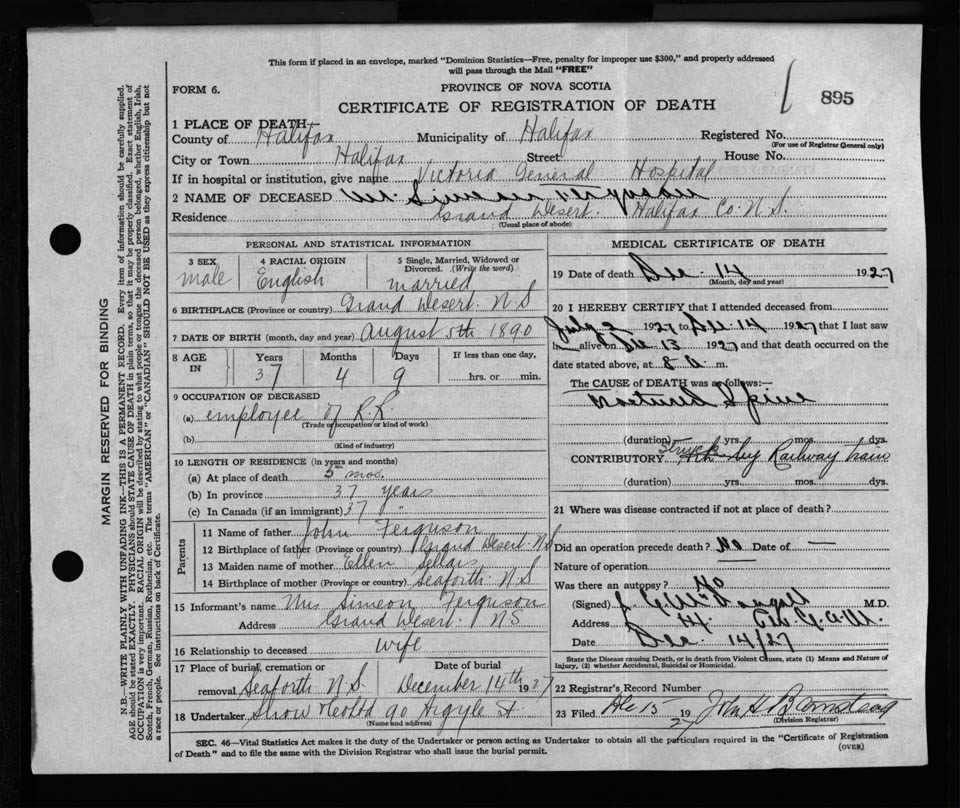 This form if placed in an envelope, marked "Dominion Statistics—Free, penalty for improper use $300," and properly addressed
will pass through the Mail "FREE"
FORM 6.
PROVINCE OF NOVA SCOTIA
895
CERTIFICATE OF REGISTRATION OF DEATH
1 PLACE OF DEATH
County of Halifax Municipality of Halifax Registered No.
(For use of Registrar General only)
City or Town Halifax Street House No.
If in hospital or institution, give name Victoria General Hospital
2 NAME OF DECEASED Mr. Simeon Ferguson
Residence Grand Desert. Halifax Co. N.S.
(Usual place of abode)
PERSONAL AND STATISTICAL INFORMATION
3 SEX
male
4 RACIAL ORIGIN
English
5 Single, Married, Widowed or
Divorced. (Write the word)
married
6 BIRTHPLACE (Province or country) Grand Desert. N.S
7 DATE OF BIRTH (month, day and year) August 5th 1890
8 AGE
IN
Years
37
Months
4
Days
9
If less than one day,
hrs. or min.
9 OCCUPATION OF DECEASED
(a) employee of R.R.
(Trade or occupation or kind of work)
(b)
(Kind of industry)
10 LENGTH OF RESIDENCE (in years and months)
(a) At place of death 5 mos.
(b) In province 37 years
(c) In Canada (if an immigrant) 37 "
Parents
11 Name of father John Ferguson
12 Birthplace of father (Province or country) Grand Desert. N.S
13 Maiden name of mother Ellen
14 Birthplace of mother (Province or country) Seaforth. N.S
15 Informant's name Mrs Simeon Ferguson
Address Grand Desert. N.S
16 Relationship to deceased wife
17 Place of burial, cremation or Date of burial
removal Seaforth N.S. December 14th 1927
18 Undertaker Snow & Co Ltd 90 Argyle St
(Name and address)
MEDICAL CERTIFICATE OF DEATH
19 Date of death Dec. 14 1927
(Month, day and year)
20 I HEREBY CERTIFY that I attended deceased from
July 2 1927 to Dec. 14 1927 that I last saw
h alive on Dec 13 1927 and that death occurred on the
date stated above, at 8 a. m.
The CAUSE of DEATH was as follows:—
Fractured Spine
(duration) yrs. mos. dys.
CONTRIBUTORY Struck by Railway train
(duration) yrs. mos. dys.
21 Where was disease contracted if not at place of death?
Did an operation precede death? No Date of —
Nature of operation —
Was there an autopsy? No
(Signed) M.D.
Address
Date Dec. 14/27
State the Disease causing Death, or in death from Violent Causes, state (1) Means and Nature of
Injury, (2) whether Accidental, Suicidal or Homicidal.
22 Registrar's Record Number
23 Filed Dec 15 1927 John H
(Division Registrar)
SEC. 46—Vital Statistics Act makes it the duty of the Undertaker or person acting as Undertaker to obtain all the particulars required in the "Certificate of Registration
of Death" and to file the same with the Division Registrar who shall issue the burial permit.
(OVER)
MARGIN RESERVED FOR BINDING
N.B.—WRITE PLAINLY WITH UNFADING INK—THIS IS A PERMANENT RECORD. Every item of information should be carefully supplied.
AGE should be stated EXACTLY. PHYSICIANS should STATE CAUSE OF DEATH in plain terms, so that it may be properly classified. Exact statement of
OCCUPATION is very important. RACIAL ORIGIN will be described by stating to what people or tongue the deceased person belonged, whether English, Irish,
Scotch, French, German, Russian, Ruthenian, etc. The terms "AMERICAN" or "CANADIAN" SHOULD NOT BE USED as they express citizenship but not
a race or people. See instructions on back of Certificate.